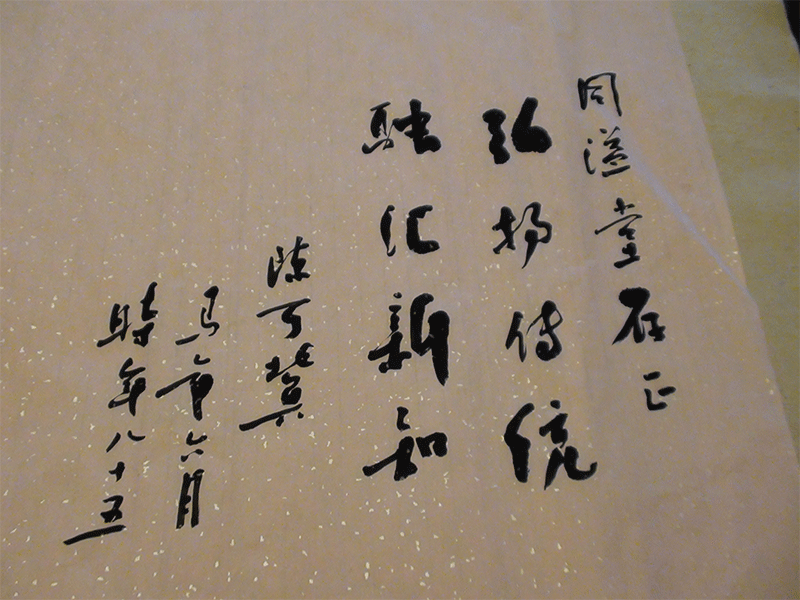 同溢堂存正
弘扬传统
融汇新知
陈可冀
马年六月
时年八十五